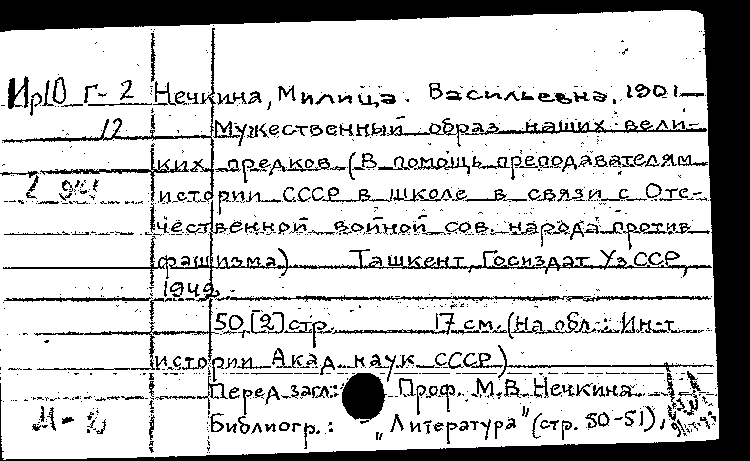 Ир10 Г-2 Нечкина, Милица. Васильевна, 1901—
12 Мужественный образ наших вели-
ких предков (В помощь преподавателям
2 экз истории СССР в школе в связи с Оте-
чественной войной сов. народа против
фашизма) Ташкент, Госиздат УзССР,
1942.
50, [2] стр. 17 см. (На обл.: Ин-т
истории Акад. наук СССР)
Перед загл: Проф. М.В. Нечкина
М-2 Библиогр.: „Литература" (стр. 50-51),